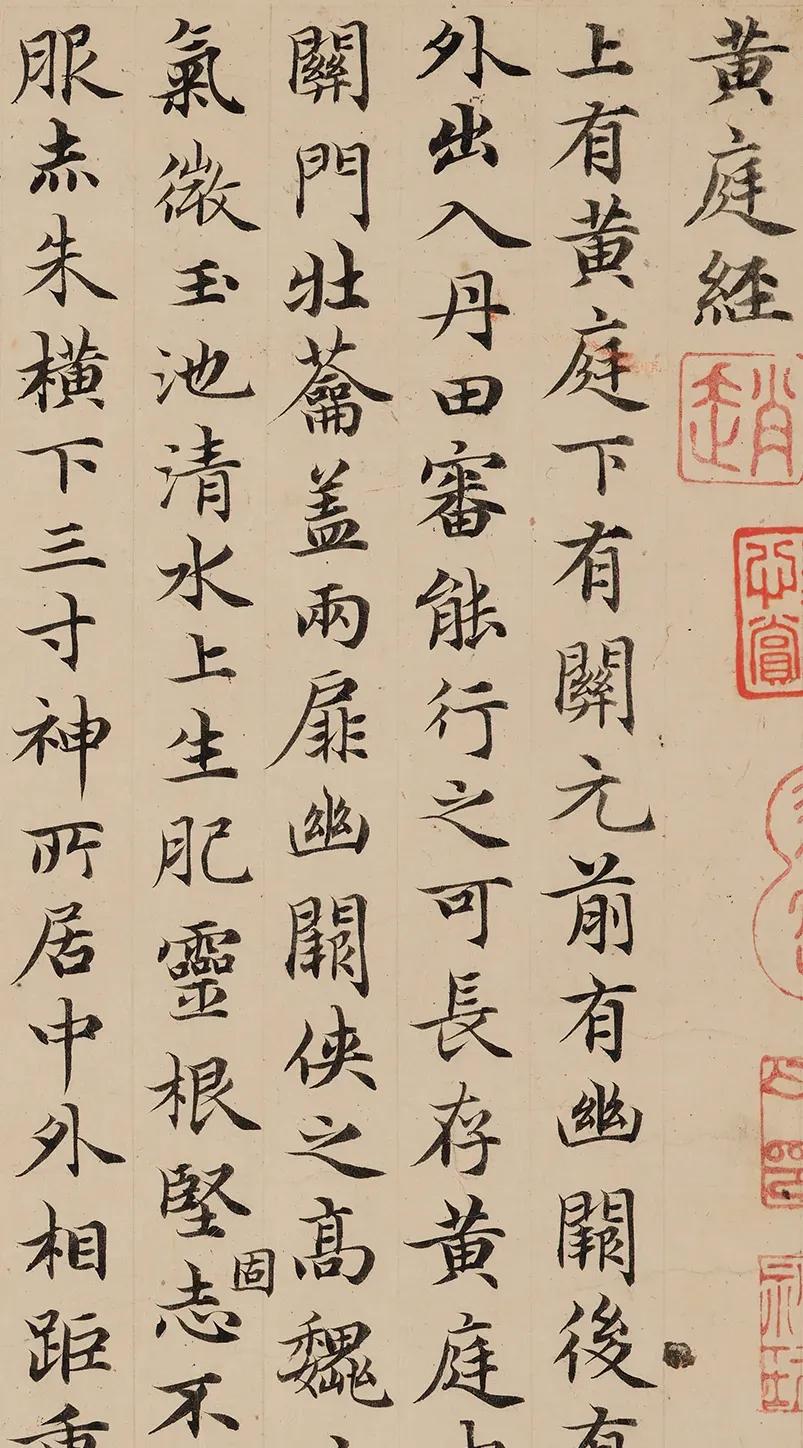 黄庭經
上有黄庭下有關元前有幽闕後有
外出入丹田審能行之可長存黄庭
關門壯蘥盖兩扉幽闕俠之高魏
氣微玉池清水上生肥靈根堅固志不
服赤朱横下三寸神所居中外相距重
趙
心賞